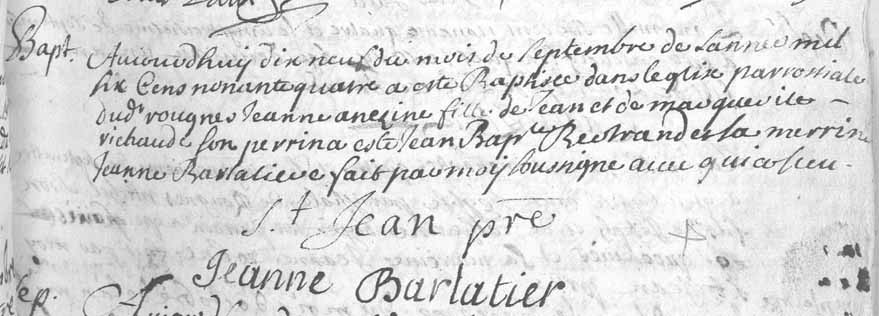 Bapt.
Aujourdhuij dix neuf du mois de Septembre de Lannee mil
six Cens nonante quatre a este Baptisée dans leglise parrossiale
dud.t rougnes Jeanne anezine fille de Jean et de marguerite
richaude son perrin a este Jean Bap.te Bertrand et la merrine
Jeanne Barlatiere fait par moij soussigne avec qui a sceu.
S.t Jean pre
Jeanne Barlatier